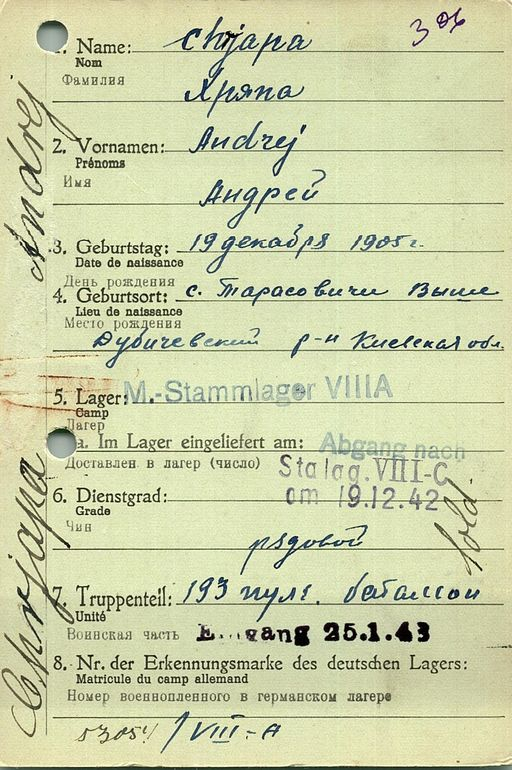 306
1. Name: Chrjapa
Nom
Фамилия
Хряпа
2. Vornamen: Andrej
Prénoms
Имя
Андрей
3. Geburtstag: 19 декабря 1905 г.
Date de naissance
День рождения
4. Geburtsort: с. Тарасовичи Выше
Lieu de naissance
Место рождения
Дубичевский р-н Киевская обл.
5. Lager: M.-Stammlager VIIIA
Camp
Лагерь
a. Im Lager eingeliefert am: Abgang nach
Доставлен в лагерь (число) Stalag. VIII-C
am 19.12.42
6. Dienstgrad:
Grade
Чин
рядовой
Sold.
7. Truppenteil: 193 пуль. батальон
Unité
Воинская часть Eingang 25.1.43
8. Nr. der Erkennungsmarke des deutschen Lagers:
Matricule du camp allemand
Номер военнопленного в германском лагере
/VIII-A
Chrjapa Andrej